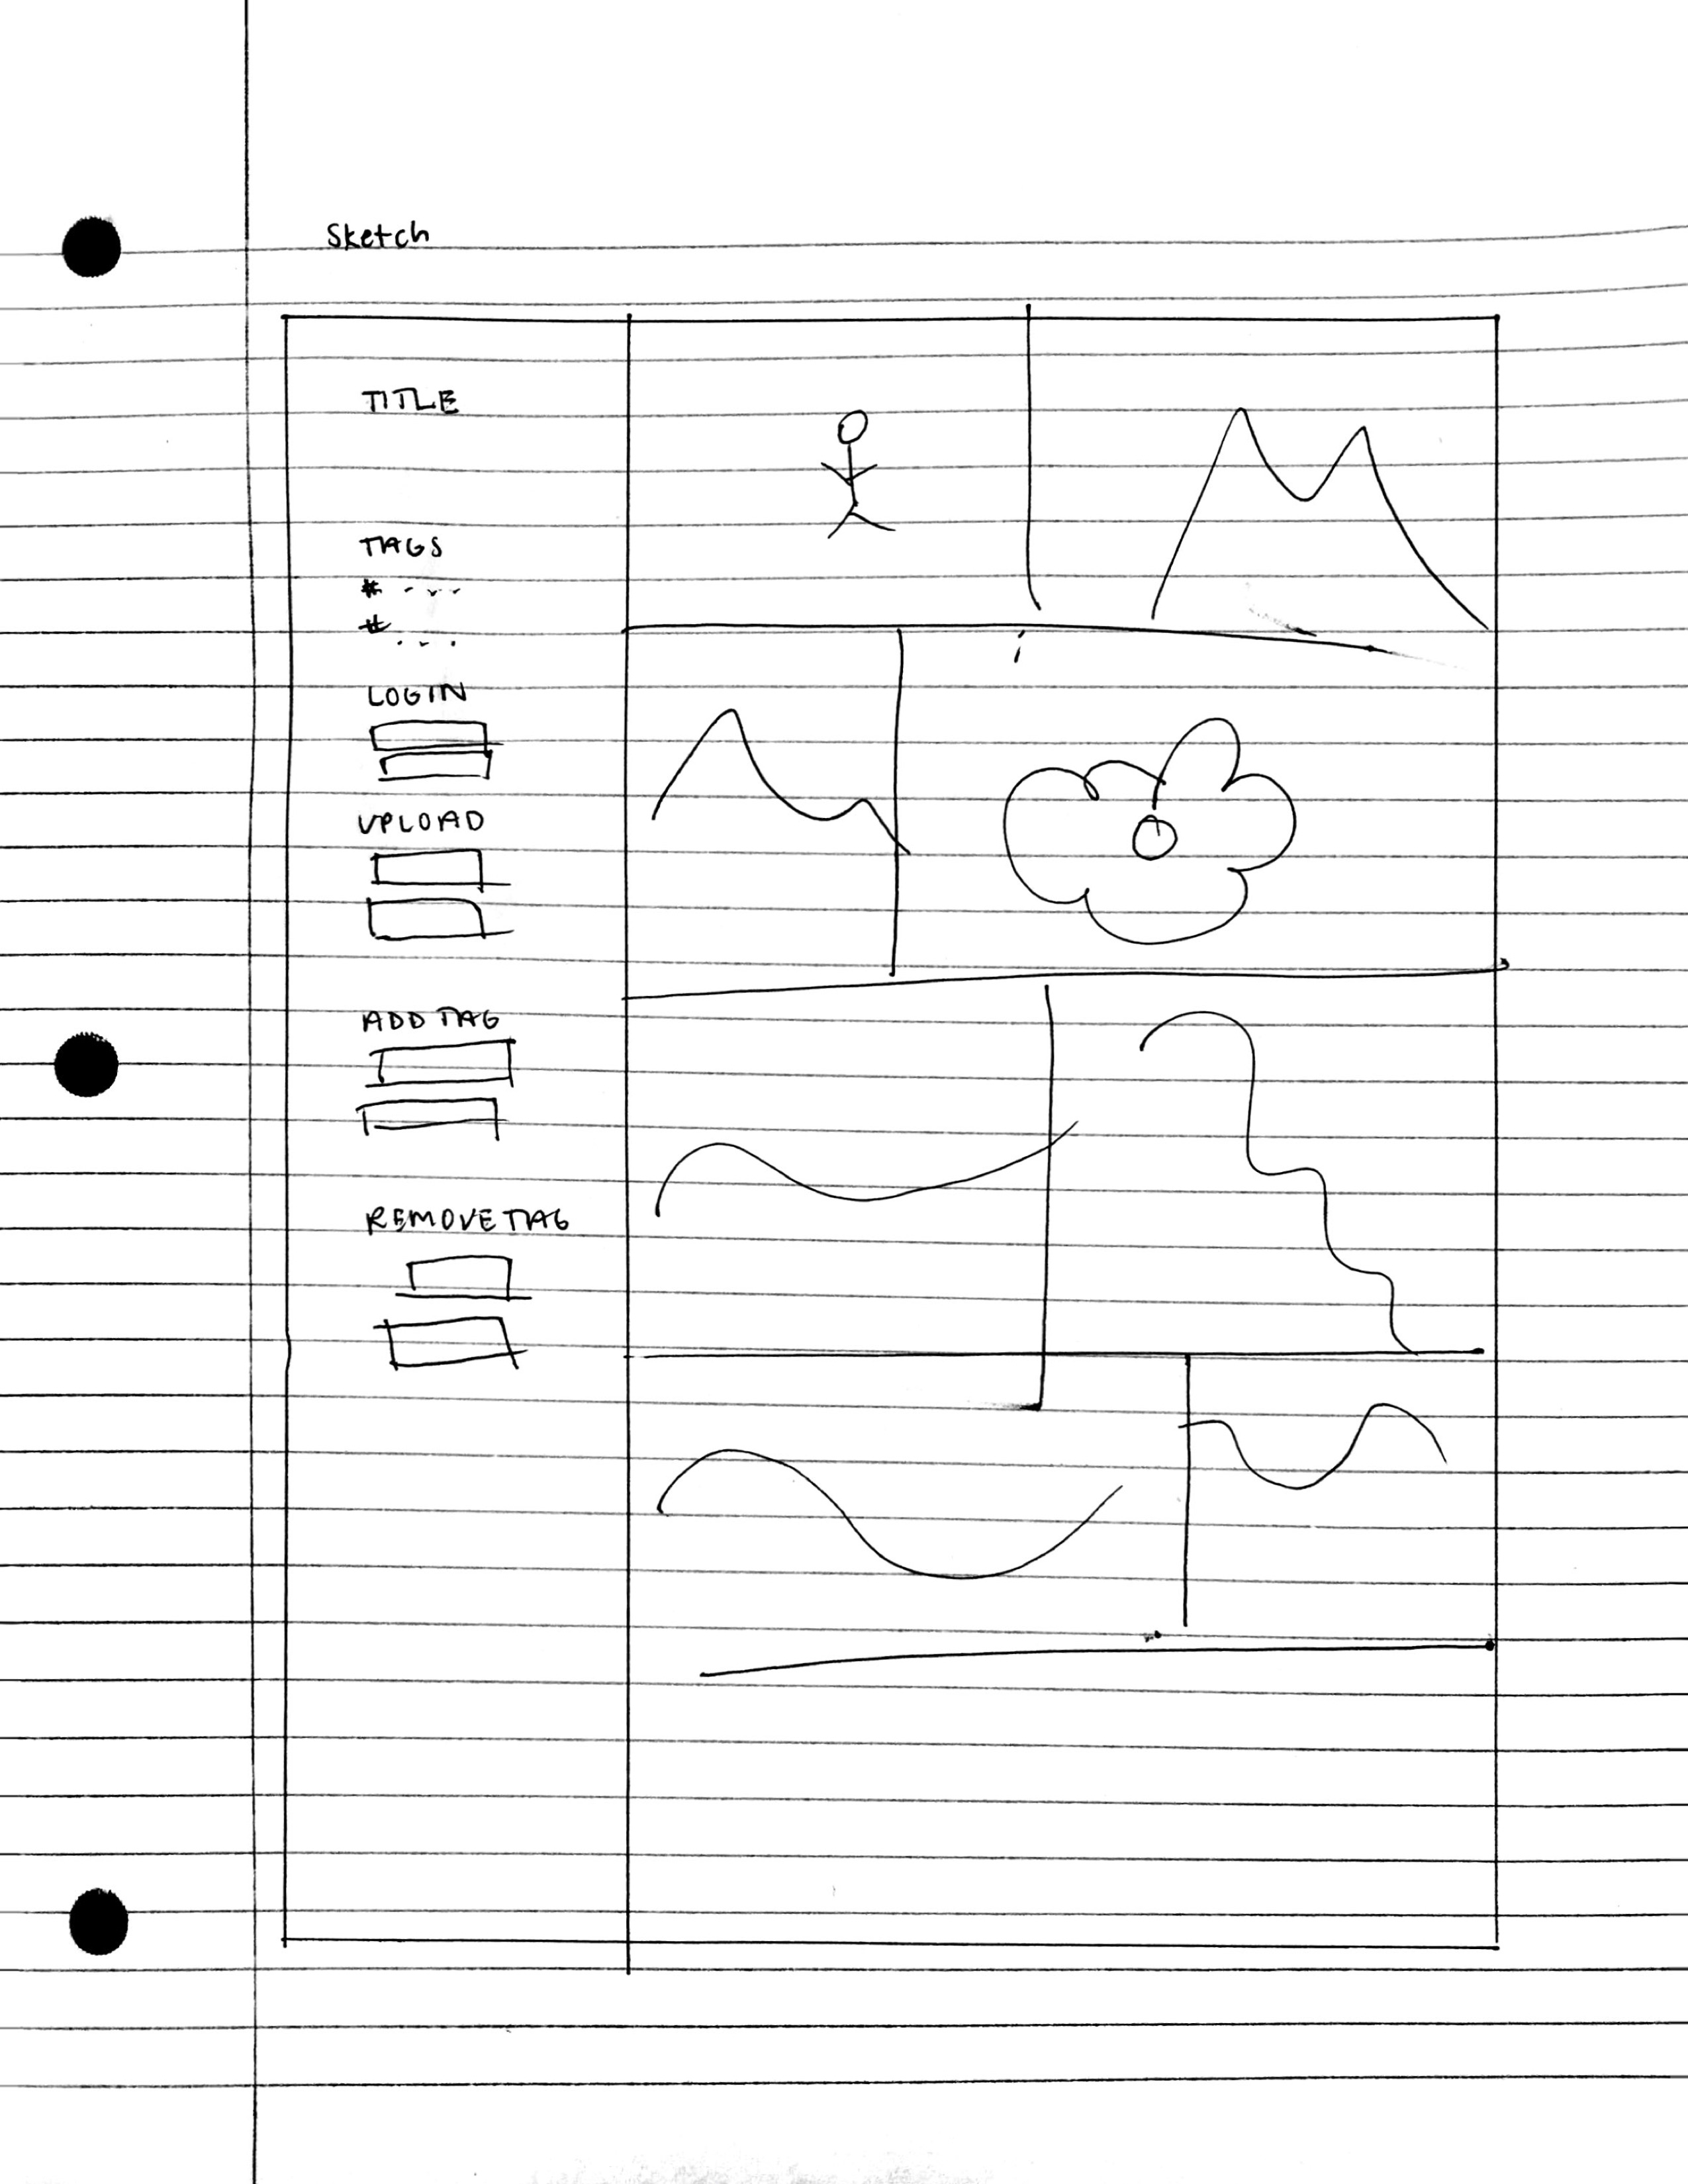 Sketch
TITLE
TAGS
#
#
LOGIN
UPLOAD
ADD TAG
REMOVE TAG